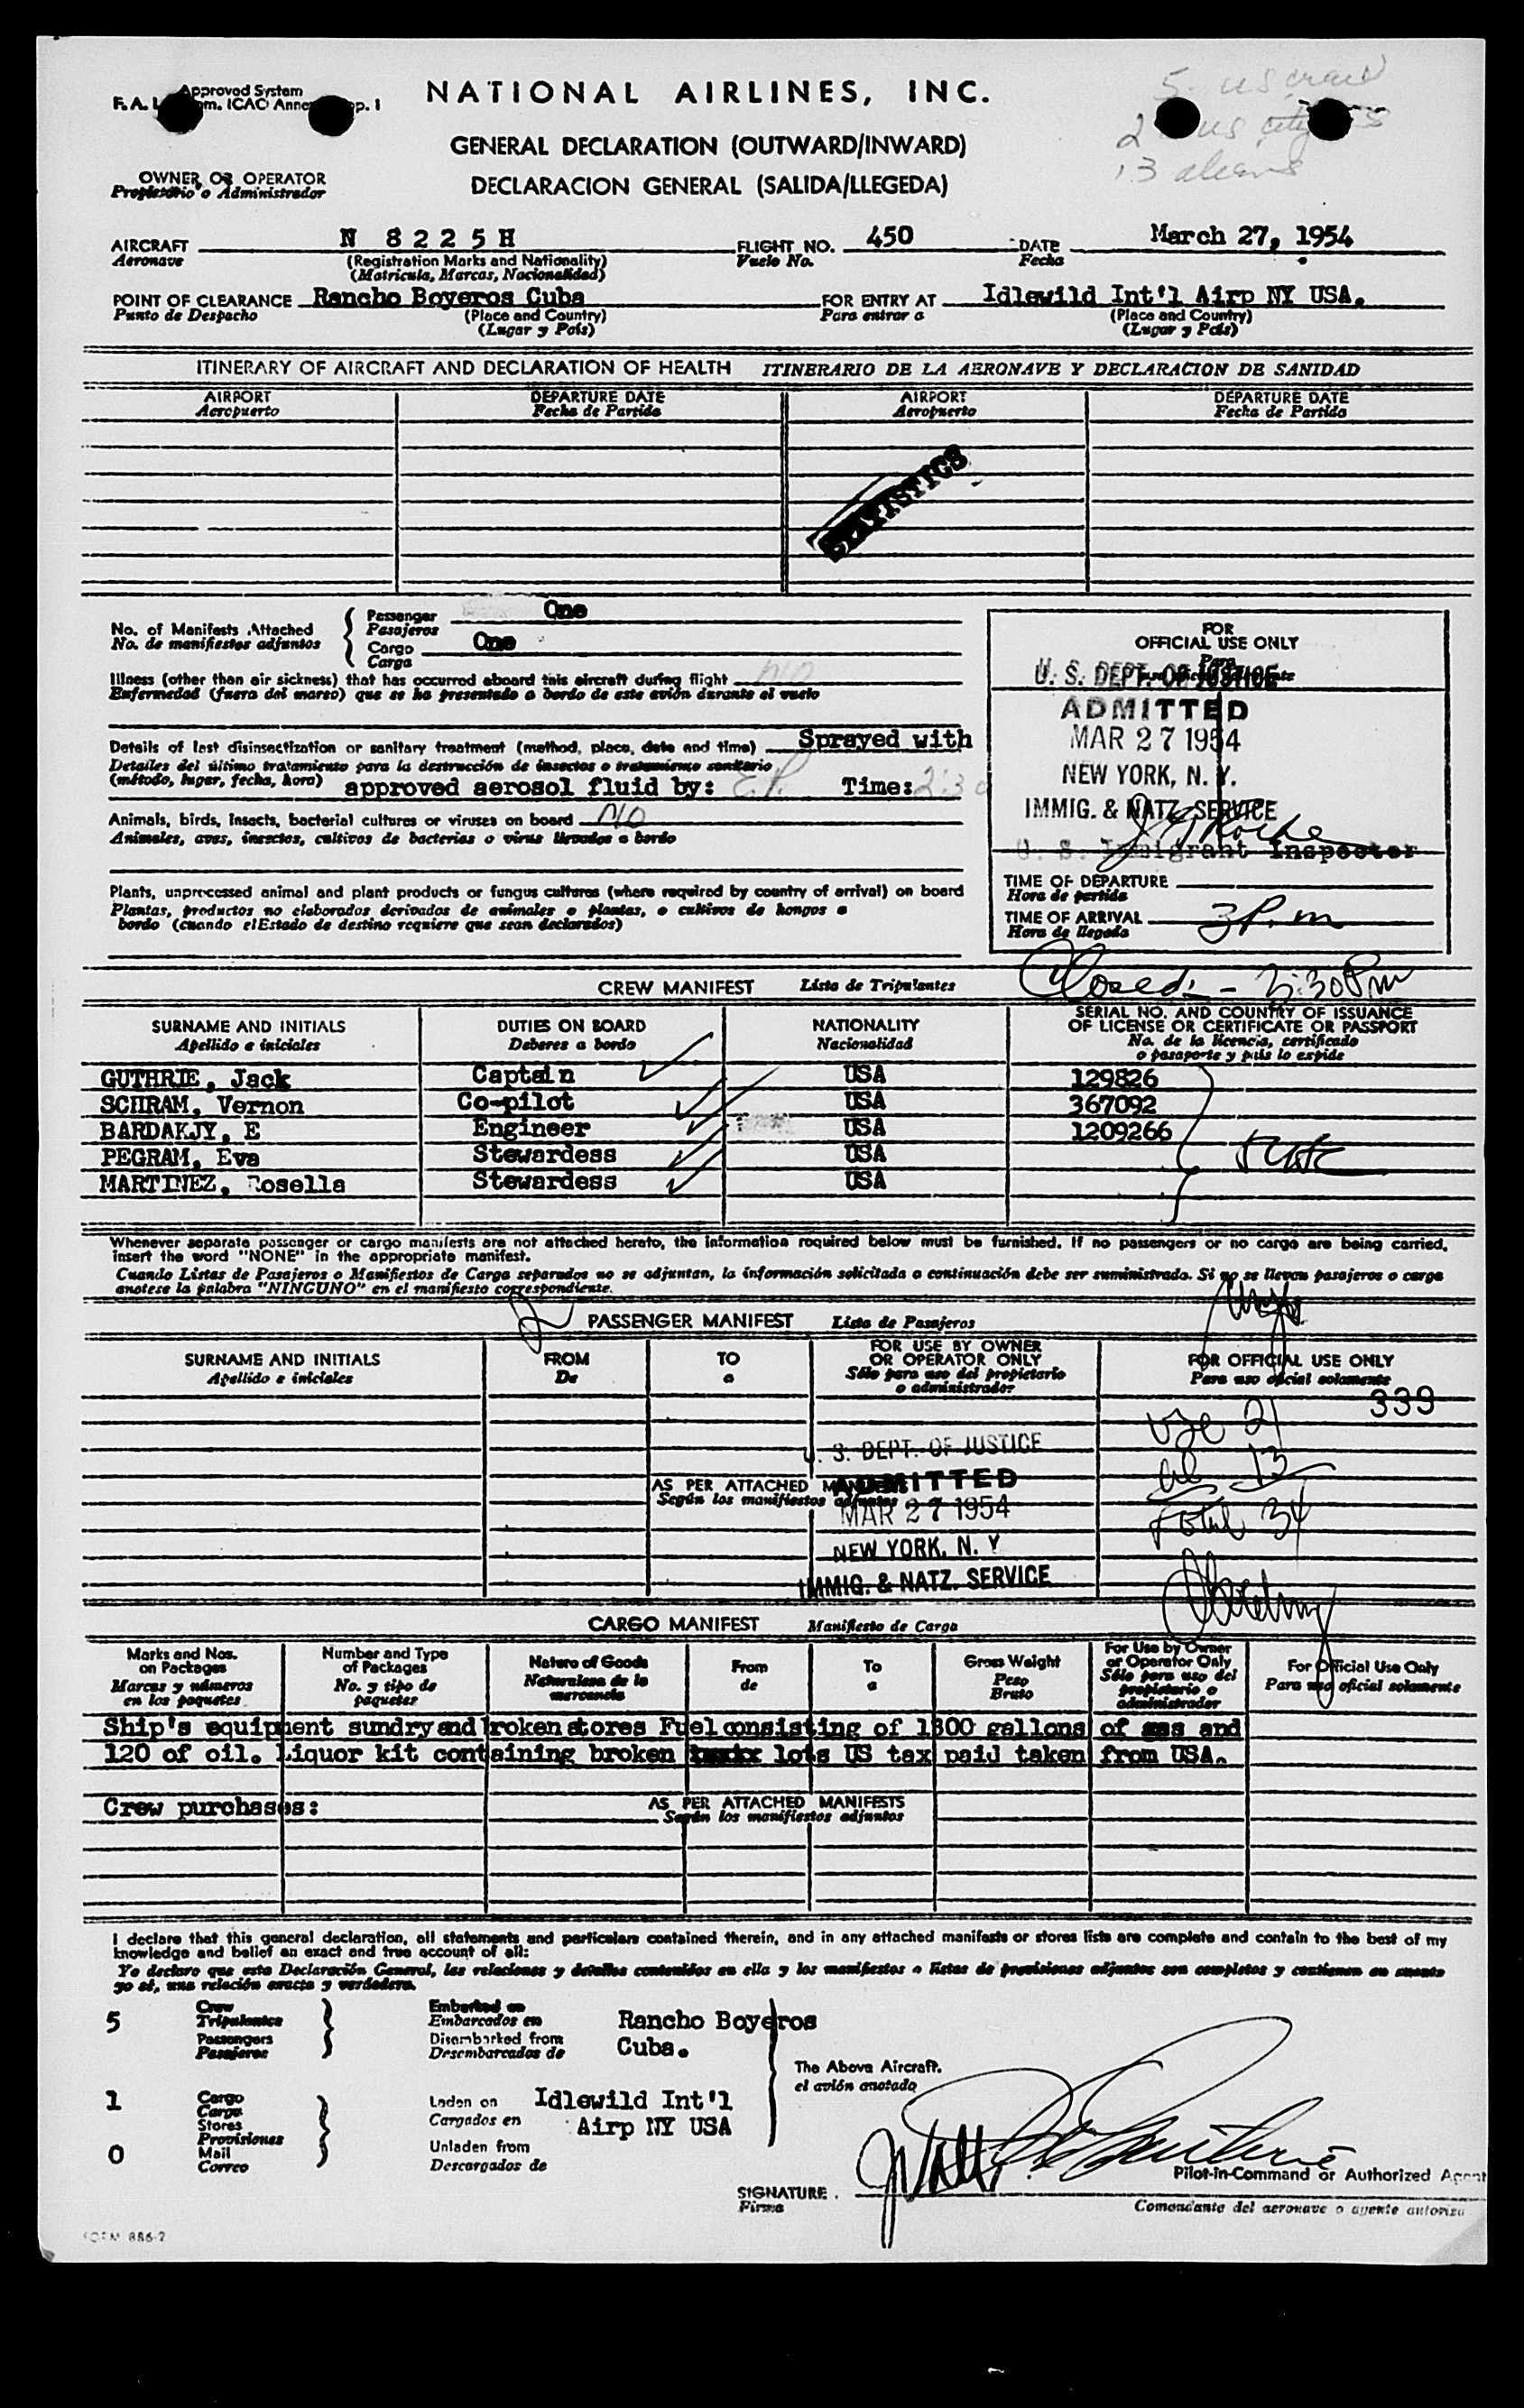 Approved System
NATIONAL AIRLINES, INC.
5 us crew
2
13 aliens
GENERAL DECLARATION (OUTWARD/INWARD)
OWNER OR OPERATOR
Propietario o Administrador
DECLARACION GENERAL (SALIDA/LLEGEDA)
AIRCRAFT N 8225H FLIGHT NO. 450 DATE March 27, 1954
Aeronave (Registration Marks and Nationality) Vuelo No. Fecha
(Matricula, Marcas, Nacionalidad)
POINT OF CLEARANCE Rancho Boyeros Cuba FOR ENTRY AT Idlewild Int'l Airp NY USA.
Punto de Despacho (Place and Country) Para entrar a (Place and Country)
(Lugar y País) (Lugar y País)
ITINERARY OF AIRCRAFT AND DECLARATION OF HEALTH ITINERARIO DE LA AERONAVE Y DECLARACION DE SANIDAD
AIRPORT DEPARTURE DATE AIRPORT DEPARTURE DATE
Aeropuerto Fecha de Partida Aeropuerto Fecha de Partida
STATISTICS
No. of Manifests Attached
No. de manifiestos adjuntos
Passenger One
Pasajeros
Cargo One
Carga
Illness (other than air sickness) that has occurred aboard this aircraft during flight NO
Enfermedad (fuera del mareo) que se ha presentado a bordo de este avión durante el vuelo
Details of last disinsectization or sanitary treatment (method, place, date and time) Sprayed with
Detalles del último tratamiento para la destrucción de insectos o tratamiento sanitario
(método, lugar, fecha, hora) approved aerosol fluid by: E.P. Time: 230
Animals, birds, insects, bacterial cultures or viruses on board NO
Animales, aves, insectos, cultivos de bacterias o virus llevados a bordo
Plants, unprocessed animal and plant products or fungus cultures (where required by country of arrival) on board
Plantas, productos no elaborados derivados de animales o plantas, o cultivos de hongos a
bordo (cuando el Estado de destino requiere que sean declarados)
FOR
OFFICIAL USE ONLY
U. S. DEPT. OF JUSTICE
ADMITTED
MAR 27 1954
NEW YORK, N. Y.
IMMIG. & NATZ. SERVICE
U. S. Immigrant Inspector
TIME OF DEPARTURE
Hora de partida
TIME OF ARRIVAL 3 P.m
Hora de llegada
Closed: - 3:30 Pm
CREW MANIFEST Lista de Tripulantes
SURNAME AND INITIALS DUTIES ON BOARD NATIONALITY SERIAL NO. AND COUNTRY OF ISSUANCE
OF LICENSE OR CERTIFICATE OR PASSPORT
Apellido e iniciales Deberes a bordo Nacionalidad No. de la licencia, certificado
o pasaporte y país lo expide
GUTHRIE, Jack Captain USA 129826
SCHRAM, Vernon Co-pilot USA 367092
BARDAKJY, E Engineer USA 1209266
PEGRAM, Eva Stewardess USA
MARTINEZ, Rosella Stewardess USA
Whenever separate passenger or cargo manifests are not attached hereto, the information required below must be furnished. If no passengers or no cargo are being carried,
insert the word "NONE" in the appropriate manifest.
Cuando Listas de Pasajeros o Manifiestos de Carga separados no se adjuntan, la información solicitada a continuación debe ser suministrada. Si no se llevan pasajeros o carga
anotese la palabra "NINGUNO" en el manifiesto correspondiente.
PASSENGER MANIFEST Lista de Pasajeros
SURNAME AND INITIALS FROM TO FOR USE BY OWNER
OR OPERATOR ONLY FOR OFFICIAL USE ONLY
Apellido e iniciales De a Sólo para uso del propietario
o administrador Para uso oficial solamente
339
21
al 13
Total 34
U. S. DEPT. OF JUSTICE
AS PER ATTACHED MANIFESTS
Según los manifiestos adjuntos
ADMITTED
MAR 27 1954
NEW YORK, N. Y
IMMIG. & NATZ. SERVICE
CARGO MANIFEST Manifiesto de Carga
Marks and Nos.
on Packages
Marcas y números
en los paquetes
Number and Type
of Packages
No. y tipo de
paquetes
Nature of Goods
Naturaleza de la
mercancia
From
de
To
a
Gross Weight
Peso
Bruto
For Use by Owner
or Operator Only
Sólo para uso del
propietario o
administrador
For Official Use Only
Para uso oficial solamente
Ship's equipment sundry and broken stores Fuel consisting of 1800 gallons of gas and
120 of oil. Liquor kit containing broken lots US tax paid taken from USA.
Crew purchases:
AS PER ATTACHED MANIFESTS
Según los manifiestos adjuntos
I declare that this general declaration, all statements and particulars contained therein, and in any attached manifests or stores lists are complete and contain to the best of my
knowledge and belief an exact and true account of all:
Yo declaro que esta Declaración General, las relaciones y detalles contenidos en ella y los manifiestos o listas de provisiones adjuntos son completos y contienen en cuanto
yo sé, una relación exacta y verdadera.
5 Crew
Tripulantes
Passengers
Pasajeros
Embarked on
Embarcados en
Disembarked from
Desembarcados de
Rancho Boyeros
Cuba.
The Above Aircraft.
el avión anotado
1 Cargo
Carga
Stores
Provisiones
0 Mail
Correo
Laden on
Cargados en
Unladen from
Descargados de
Idlewild Int'l
Airp NY USA
SIGNATURE
Firma
Pilot-in-Command or Authorized Agent
Comandante del aeronave o agente autoriza
FORM 886-2